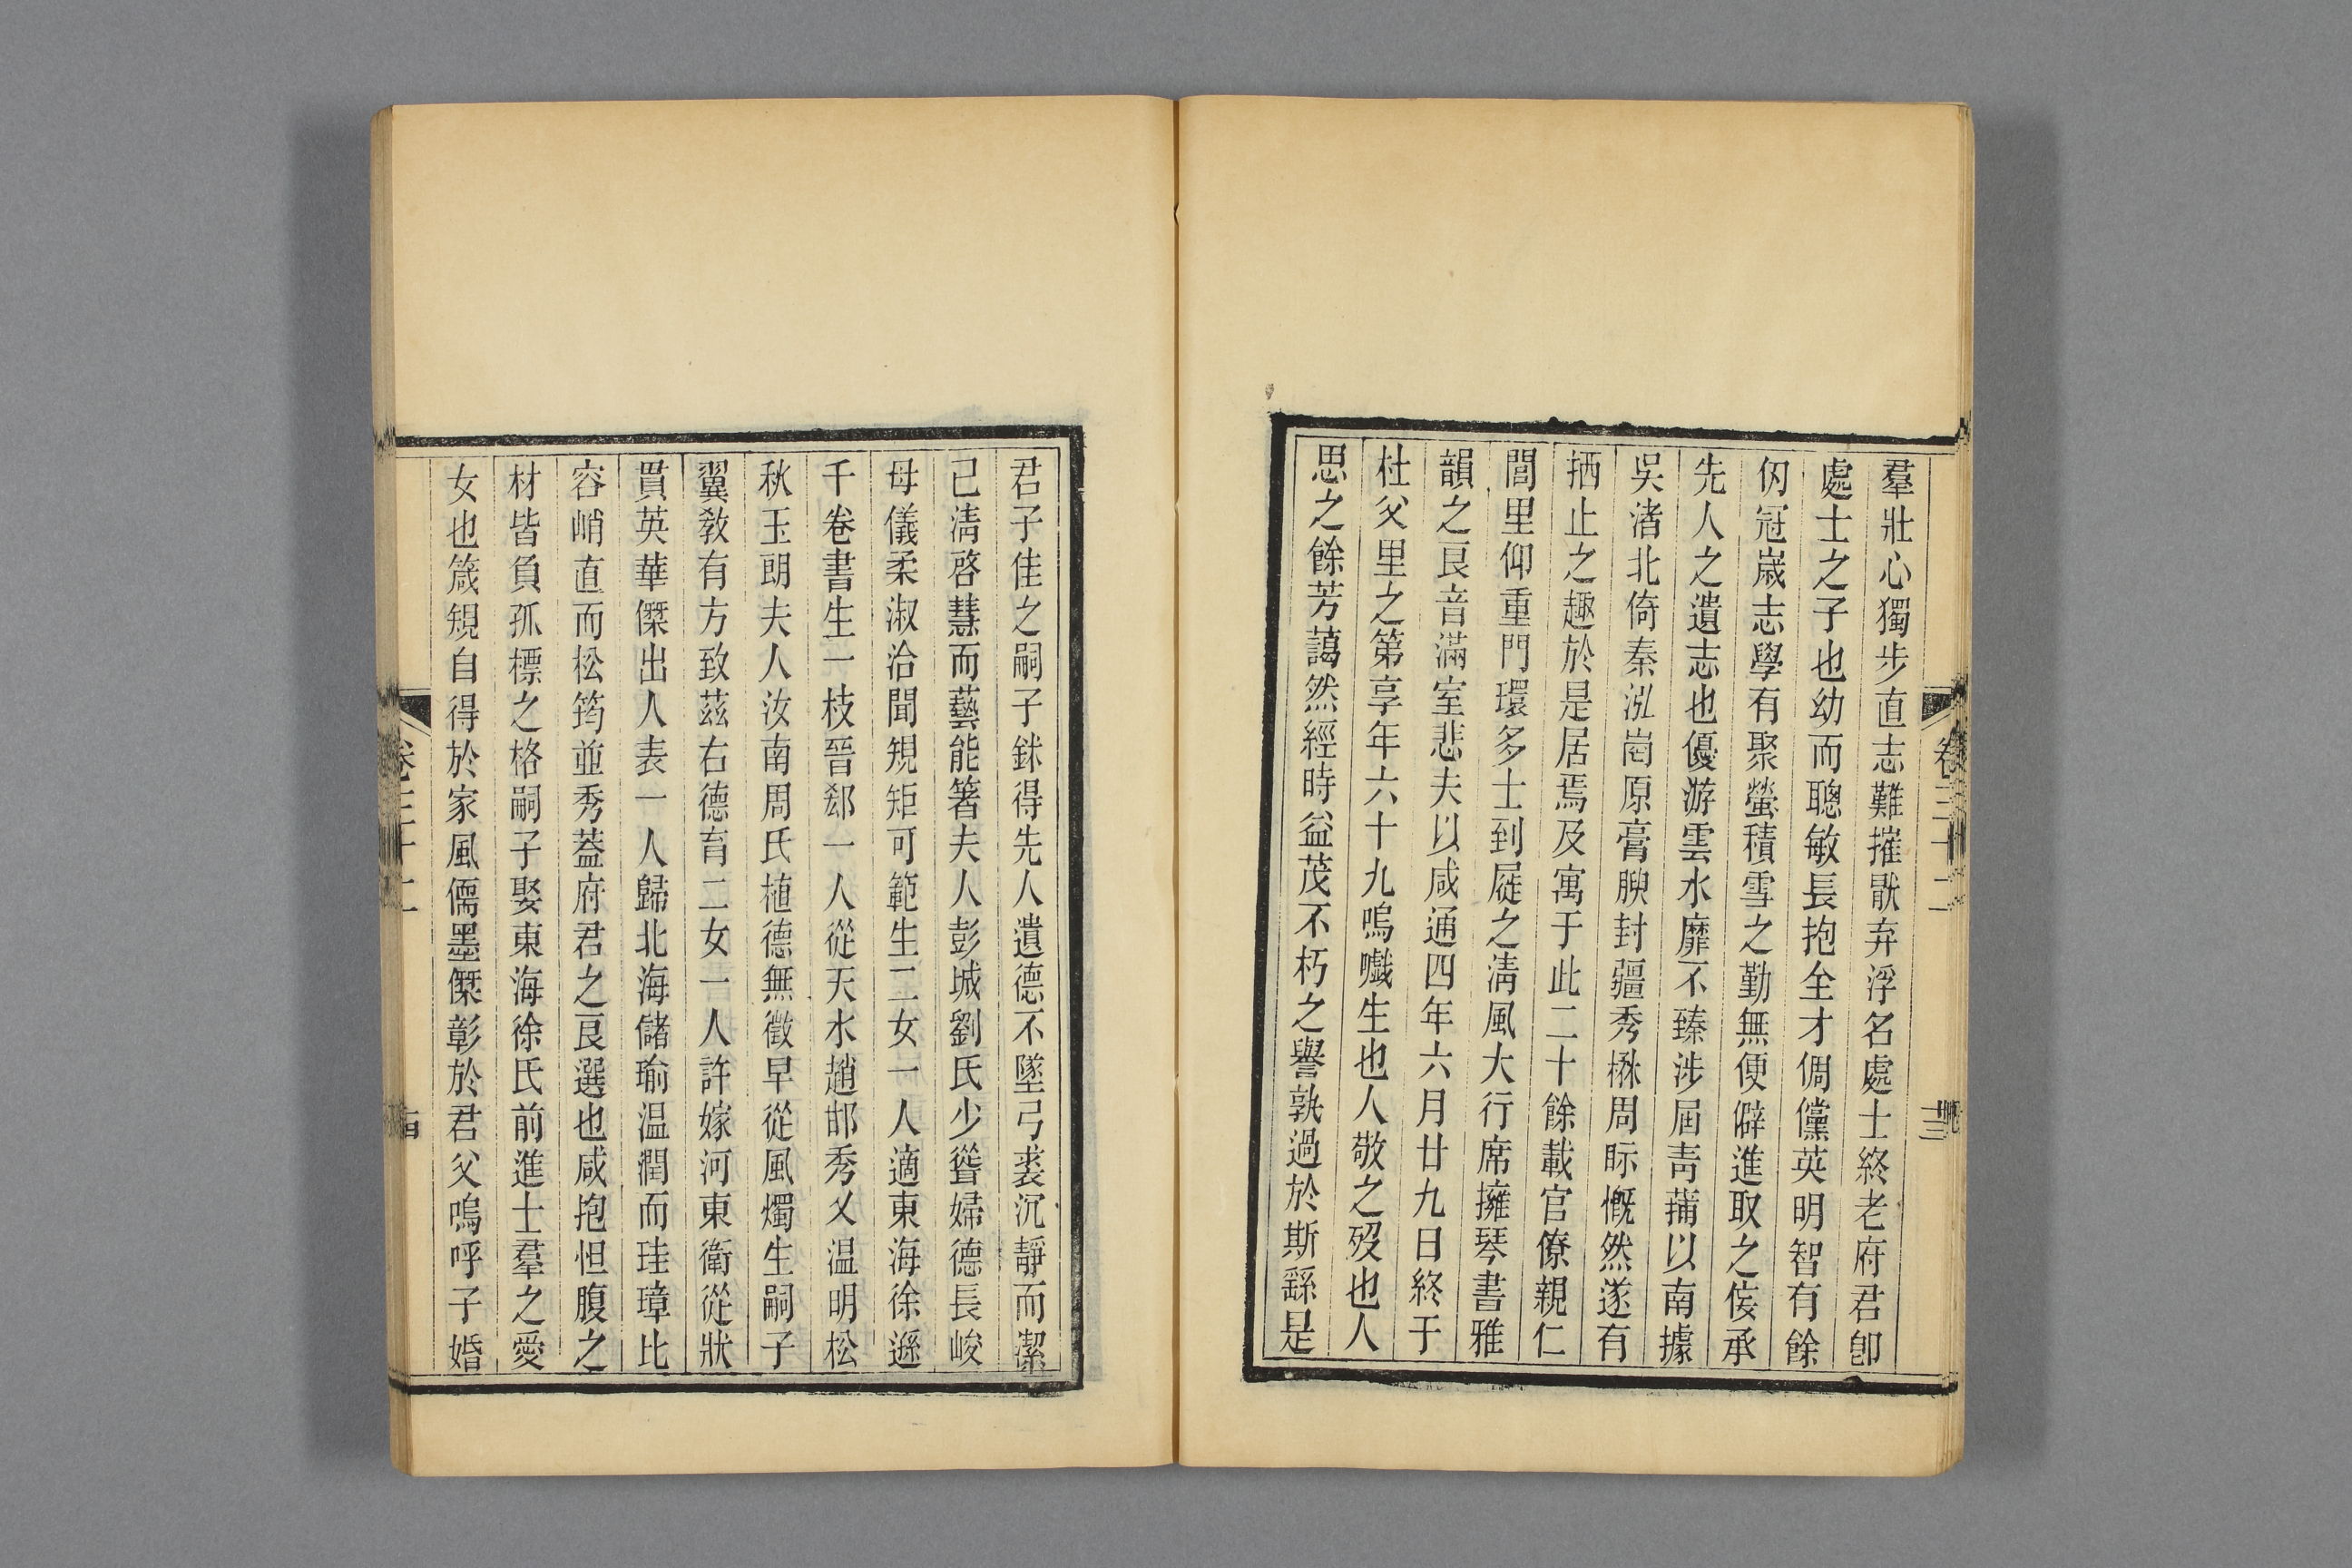 羣壯心獨步直志難摧厭弃浮名處士終老府君卽
處士之子也幼而聰敏長抱全才倜儻英明智有餘
仞冠嵗志學有聚螢積雪之勤無便僻進取之侫承
先人之遺志也優游雲水靡不臻涉屆青蒲以南據
吳渚北倚秦泓崗原膏腴封疆秀楙周眎慨然遂有
栖止之趣於是居焉及寓于此二十餘載官僚親仁
閭里仰重門環多士到屣之清風大行席擁琴書雅
韻之良音滿室悲夫以咸通四年六月廿九日終于
杜父里之第享年六十九嗚嚱生也人敬之歿也人
思之餘芳藹然經時益茂不朽之譽孰過於斯繇是
卷三十二
十三
君子佳之嗣子銤得先人遺德不墜弓裘沉靜而潔
已清啓慧而藝能箸夫人彭城劉氏少聳婦德長峻
母儀柔淑洽聞規矩可範生二女一人適東海徐遜
千卷書生一枝晉郄一人從天水趙邯秀乂温明松
秋玉朗夫人汝南周氏植德無徵早從風燭生嗣子
翼敎有方致茲右德育二女一人許嫁河東衛從狀
貫英華傑出人表一人歸北海儲瑜温潤而珪璋比
容峭直而松筠並秀葢府君之良選也咸抱怛腹之
材皆負孤標之格嗣子娶東海徐氏前進士羣之愛
女也箴規自得於家風儒墨傑彰於君父嗚呼子婚
卷三十二